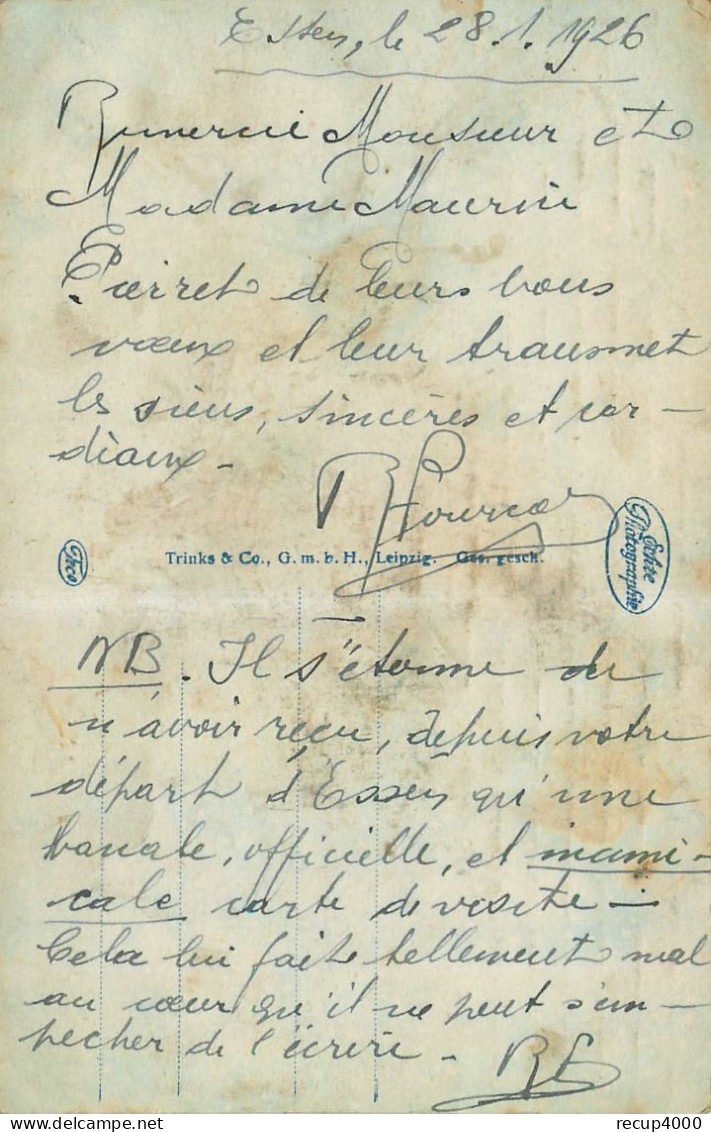 Essen, le 28.1.1926
Remercie Monsieur et
Madame Maurice
Pierret de leurs bons
vœux et leur transmet
les siens, sincères et cor-
diaux -
Trinks & Co., G. m. b. H., Leipzig. Ges. gesch.
Echte
Photographie
NB. Il s'étonne de
n'avoir reçu, depuis votre
départ d'Essen qu'une
banale, officielle, et inami-
cale carte de visite -
Cela lui fait tellement mal
au cœur qu'il ne peut s'em-
pecher de l'écrire -
recup4000